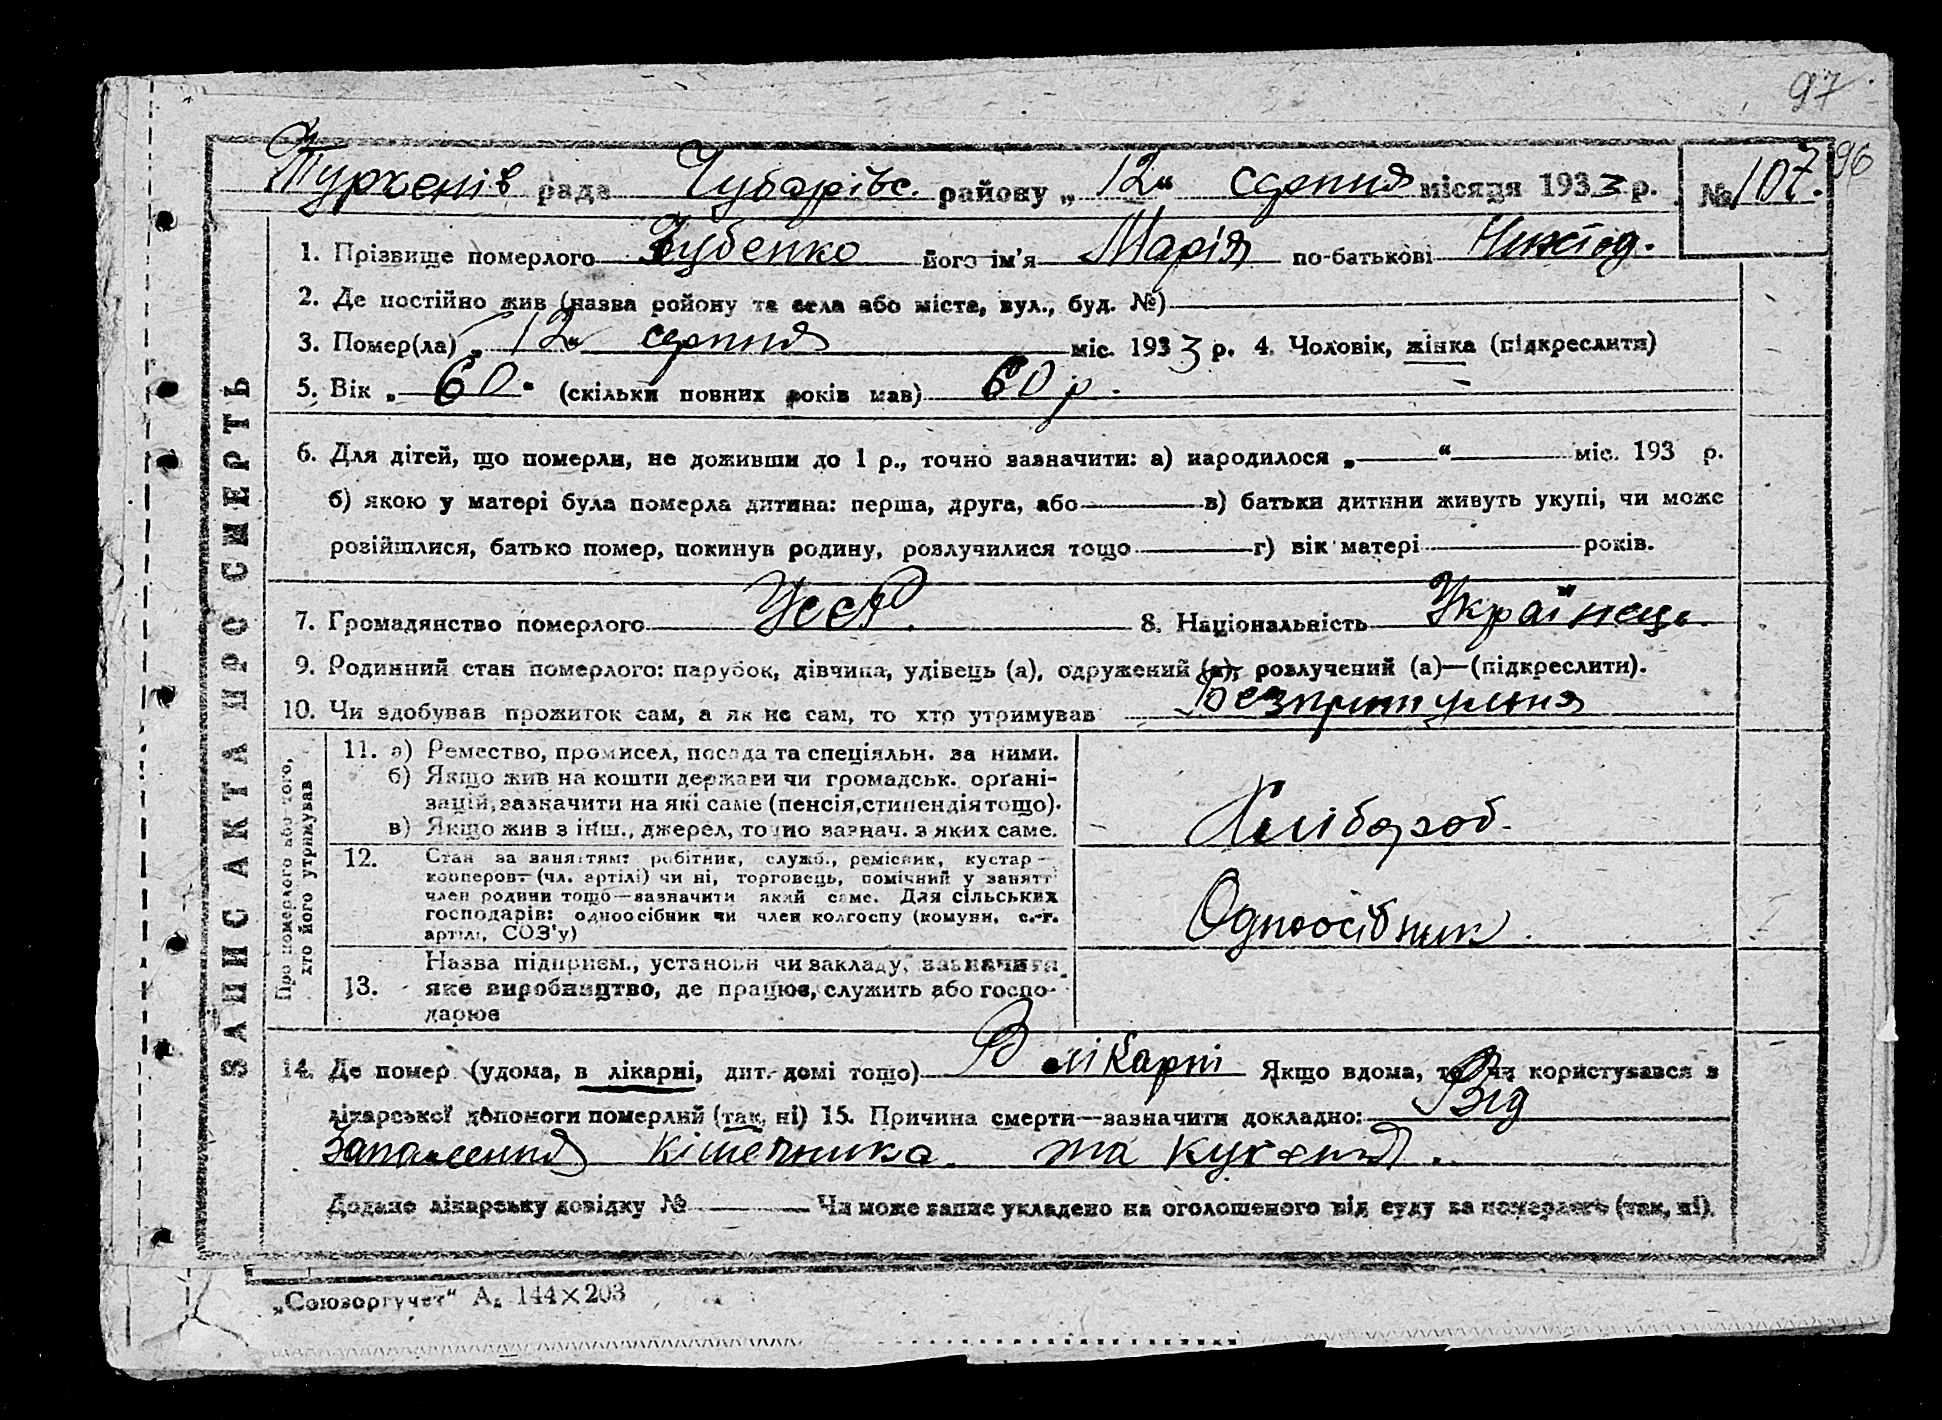 97
96
Туркенів рада Чубарівс. району „ 12 “ серпня місяця 1933 р. № 107.
1. Прізвище померлого Зубенко його ім'я Марія по-батькові
2. Де постійно жив (назва ройону та села або міста, вул., буд. №)
3. Помер(ла) „ 12 “ серпня міс. 1933 р. 4. Чоловік, жінка (підкреслити)
5. Вік „ 60 “ (скільки повних років мав) 60 р.
6. Для дітей, що померли, не доживши до 1 р., точно зазначити: а) народилося „ “ міс. 193 р.
б) якою у матері була померла дитина: перша, друга, або в) батьки дитини живуть укупі, чи може
розійшлися, батько помер, покинув родину, розлучилися тощо г) вік матері років.
7. Громадянство померлого УССР. 8. Національність Українець.
9. Родинний стан померлого: парубок, дівчина, удівець (а), одружений (а), розлучений (а)—(підкреслити).
10. Чи здобував прожиток сам, а як не сам, то хто утримував Безпритульня
ЗАПИС АКТА ПРО СМЕРТЬ
Про померлого або того,
хто його утримував
11. а) Ремество, промисел, посада та спеціяльн. за ними.
б) Якщо жив на кошти держави чи громадськ. орґані-
зацій, зазначити на які саме (пенсія, стипендія тощо).
в) Якщо жив з інш., джерел, точно зазнач. з яких саме.
Хлібороб.
12. Стан за заняттям: робітник, служб., ремісник, кустар —
кооперов— (чл. артілі) чи ні, торговець, помічний у занятт
член родини тощо—зазначити який саме. Для сільських
господарів: одноосібник чи член колгоспу (комуни, с.-г.
артілі, СОЗ'у)
Одноосібник.
Назва підприєм., установи чи закладу, зазначити
13. яке виробництво, де працює, служить або госпо-
дарює
14. Де помер (удома, в лікарні, дит. домі тощо) В лікарні Якщо вдома, то чи користувався з
лікарської допомоги померлий (так, ні) 15. Причина смерти—зазначити докладно: Від
Запалення кішечника та
Додано лікарську довідку № Чи може запис укладено на оголошеного від суду за померлого (так, ні).
„Союзоргучет“ А. 144×203